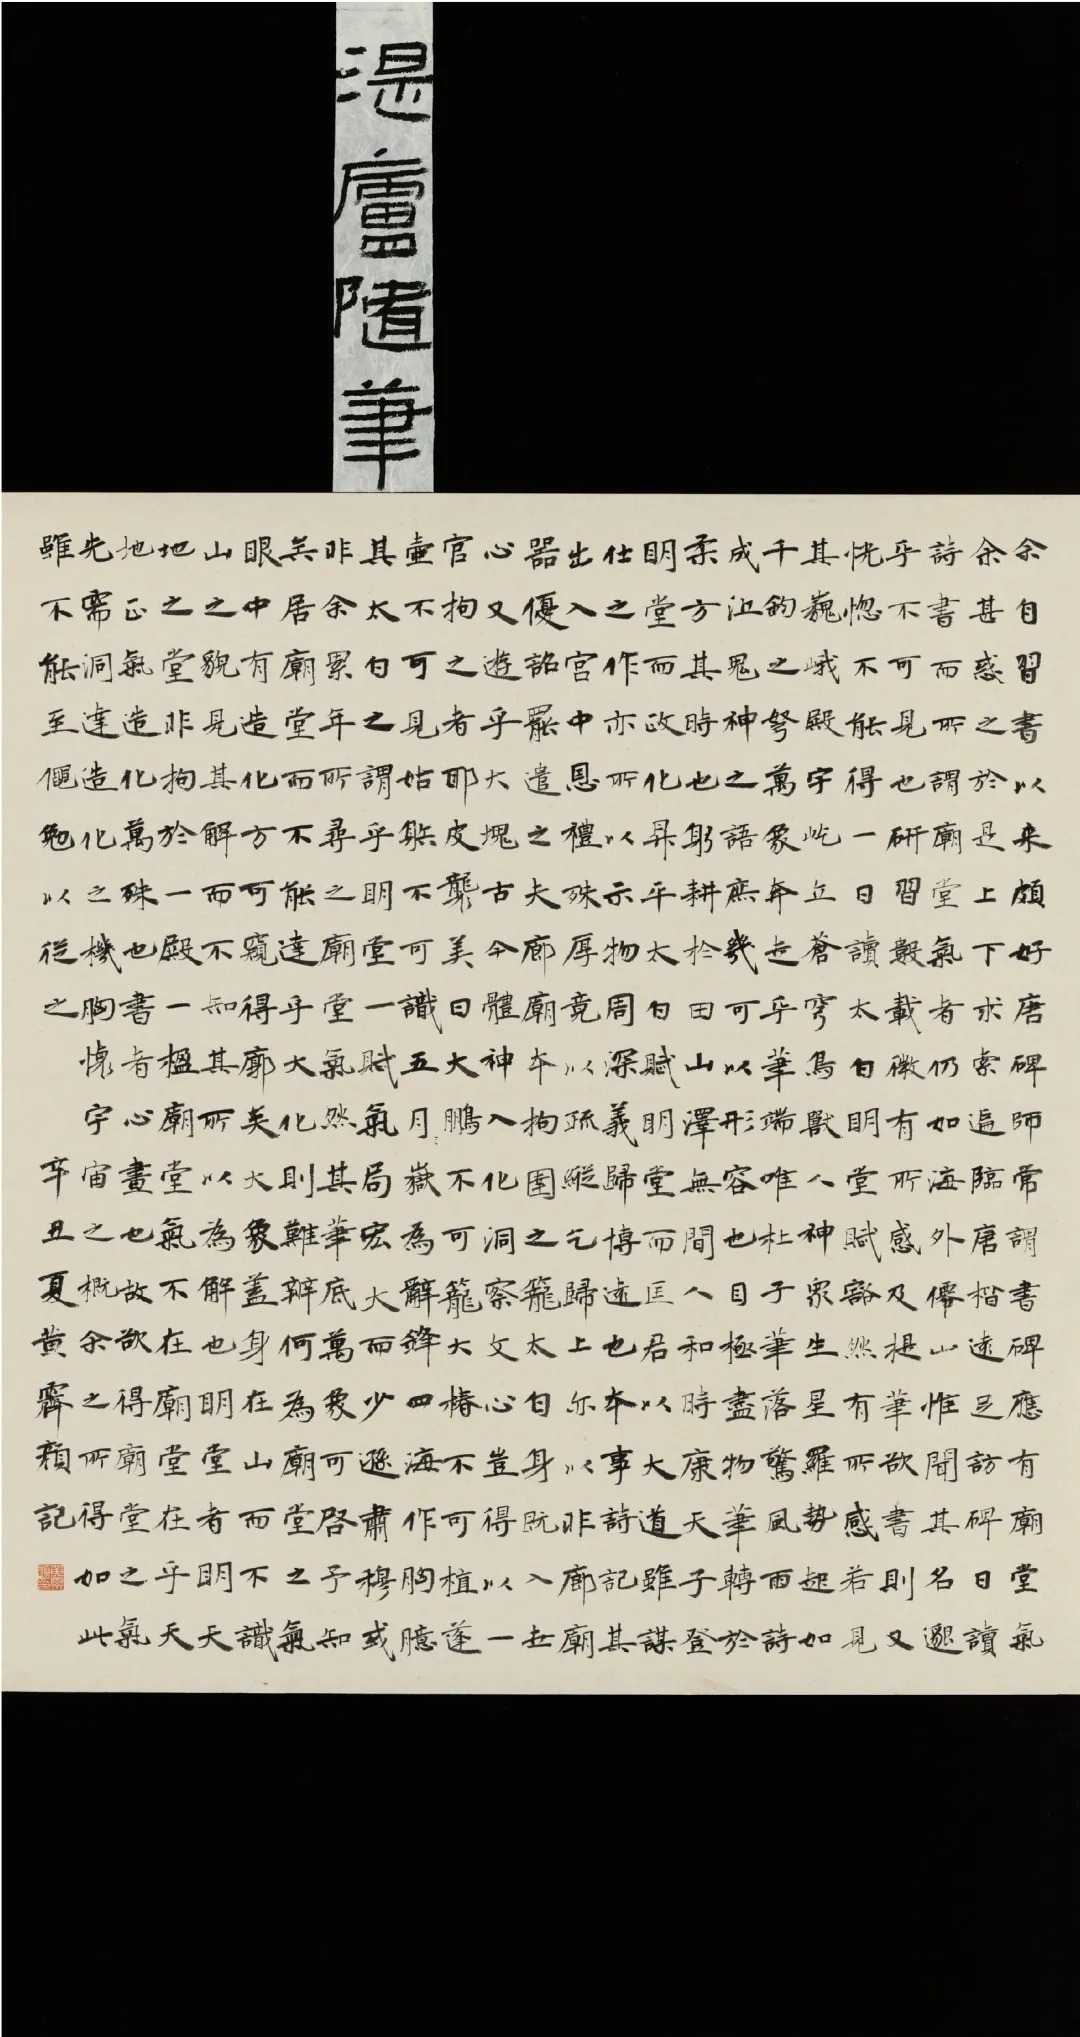 湛廬隨筆
余自習書以来頗好唐碑師常謂書碑應有廟堂氣
余甚惑之於是上下求索遍臨唐楷遠足訪碑日讀
詩書而所謂廟堂氣者仍如海外僊山惟聞其名邈
乎不可見也研習數載微有所感及提筆欲書則又
恍惚不能得一日讀太白明堂賦豁然有所感若見
其巍峨殿宇屹立蒼穹鳥獸人神眾生星羅勢起如
千鈞之弩萬象奔走乎筆端唯杜子華落驚風雨詩
成泣鬼神之語庶幾可以形容也目極盡物筆轉於
柔方其時也躬耕於田山澤無間人和時康天子登
明堂而政化昇平太白賦明堂而匡君以大道雖謀
仕之作亦所以示物周深義歸博達也本事詩記其
出入宮中恩禮殊厚竟以疏縱乞歸上尔以非廊廟
器優詔罷遣之夫廊廟本拘囿之籠太白身既入世
心又遊乎大塊古今體神入化洞察文心豈得以一
官拘之者耶皮襲美曰大鵬不可籠大椿不可植蓬
壺不可見姑繇不可識五月嶽為辭鋒四海作胸臆
其太白之謂乎明堂一賦氣局宏大而少遜肅穆或
非余累年所尋之廟堂氣然其筆底萬象可啓予知
矣居廟堂而不能達乎大化則難辨何為廟堂之氣
眼中有造化方可窺得廓矣大象蓋身在山而不識
山之貌見其解而不知其所以為解也明堂者明天
地之堂非拘於一殿一楹廟堂氣不在廟堂在乎天
地正氣造化萬殊也書者心畫也故欲得廟堂之氣
先需洞達造化之機胸懷宇宙之概余之所得如此
雖不能至僶勉以從之
辛丑夏黃霽顏記